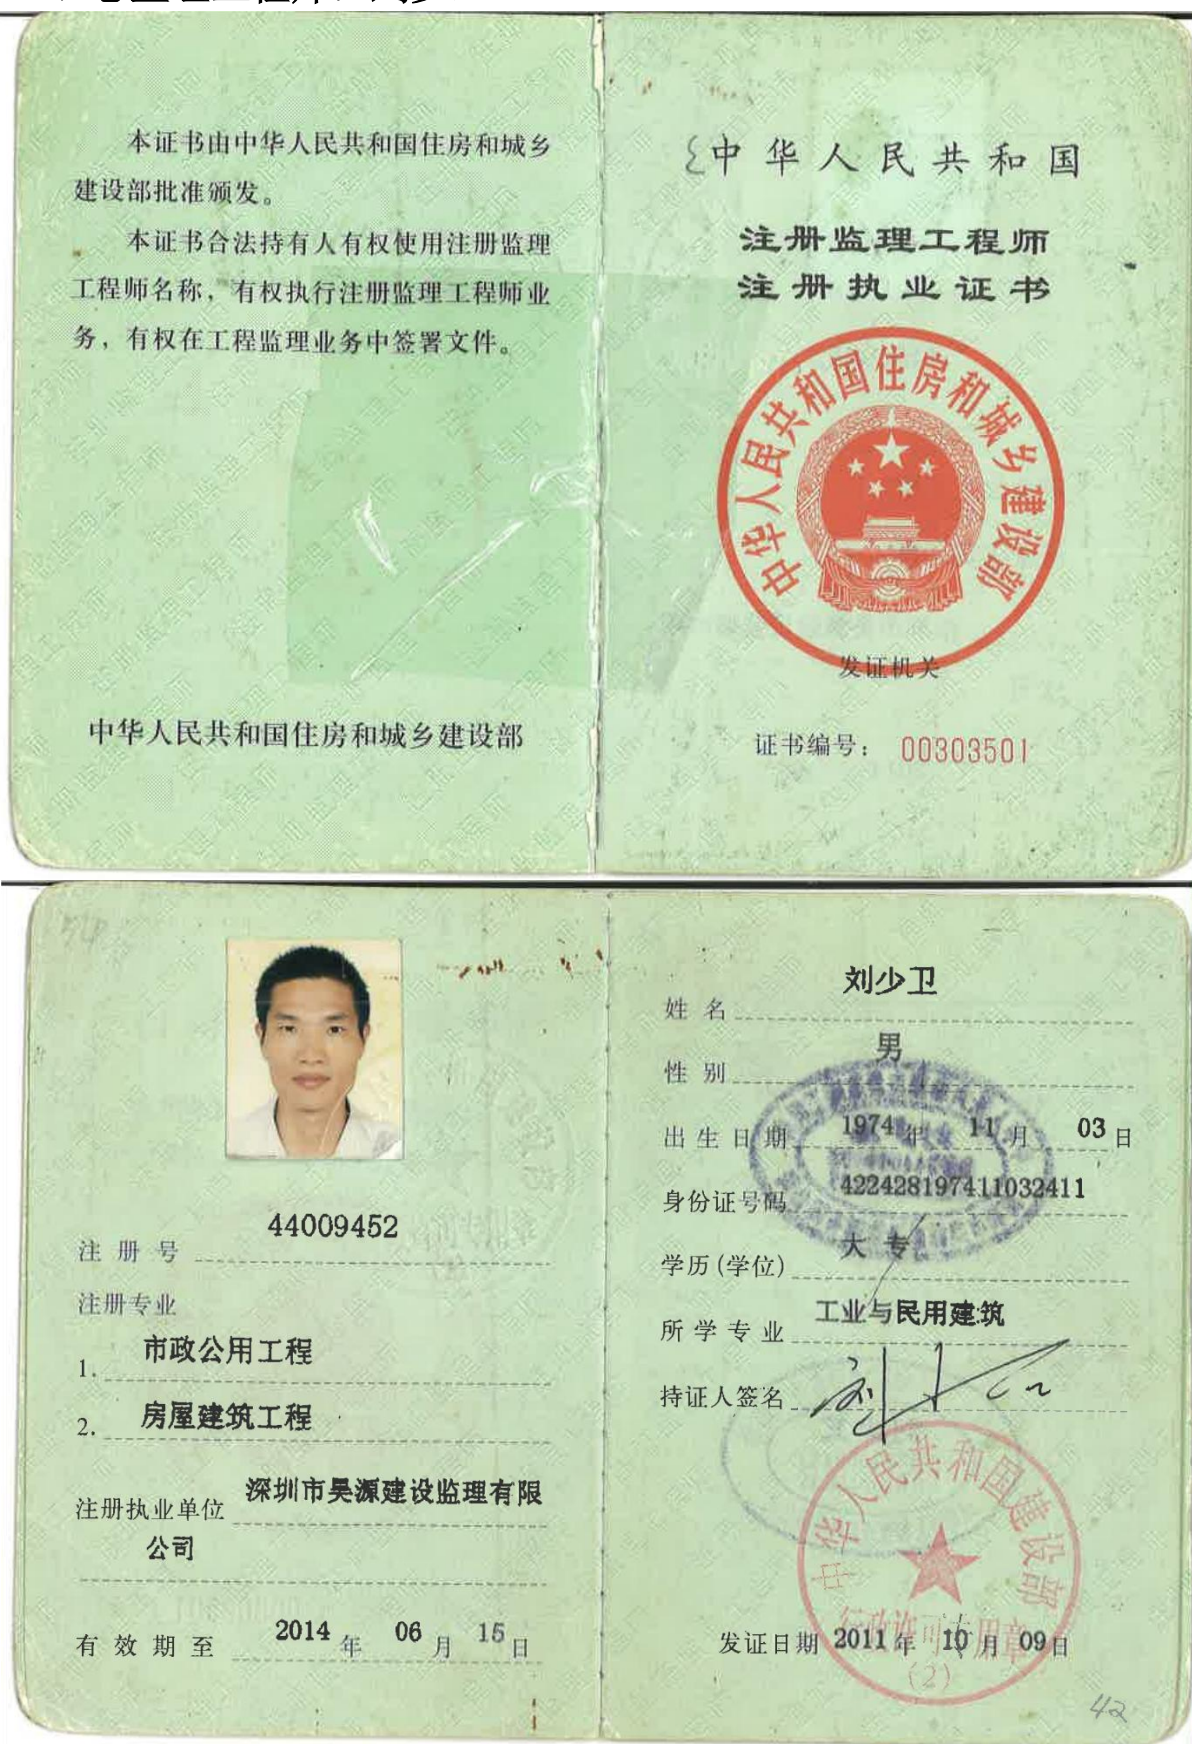 本证书由中华人民共和国住房和城乡
建设部批准颁发。
本证书合法持有人有权使用注册监理
工程师名称，有权执行注册监理工程师业
务，有权在工程监理业务中签署文件。
中华人民共和国住房和城乡建设部
中华人民共和国
注册监理工程师
注册执业证书
中华人民共和国住房和城乡建设部
发证机关
证书编号： 00303501
注册号 44009452
注册专业
1. 市政公用工程
2. 房屋建筑工程
注册执业单位 深圳市昊源建设监理有限
公司
有效期至 2014年 06月 15日
姓名 刘少卫
性别 男
出生日期 1974年 11月 03日
身份证号码 422428197411032411
学历(学位) 大专
所学专业 工业与民用建筑
持证人签名
中华人民共和国建设部
行政许可专用章
(2)
发证日期 2011年 10月 09日
42